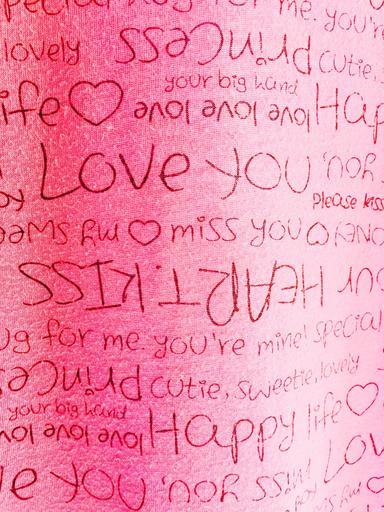 special hug for me. you're
lovely princess cutie,
your big hand
life ♡ love love love Hap
Love you you,
Please kiss
my swee ♡ miss you ♡
HEART KISS
ug for me. you're mine! special
princess cutie, sweetie, lovely
your big hand
love love love Happy life ♡
ve you miss you, Lov